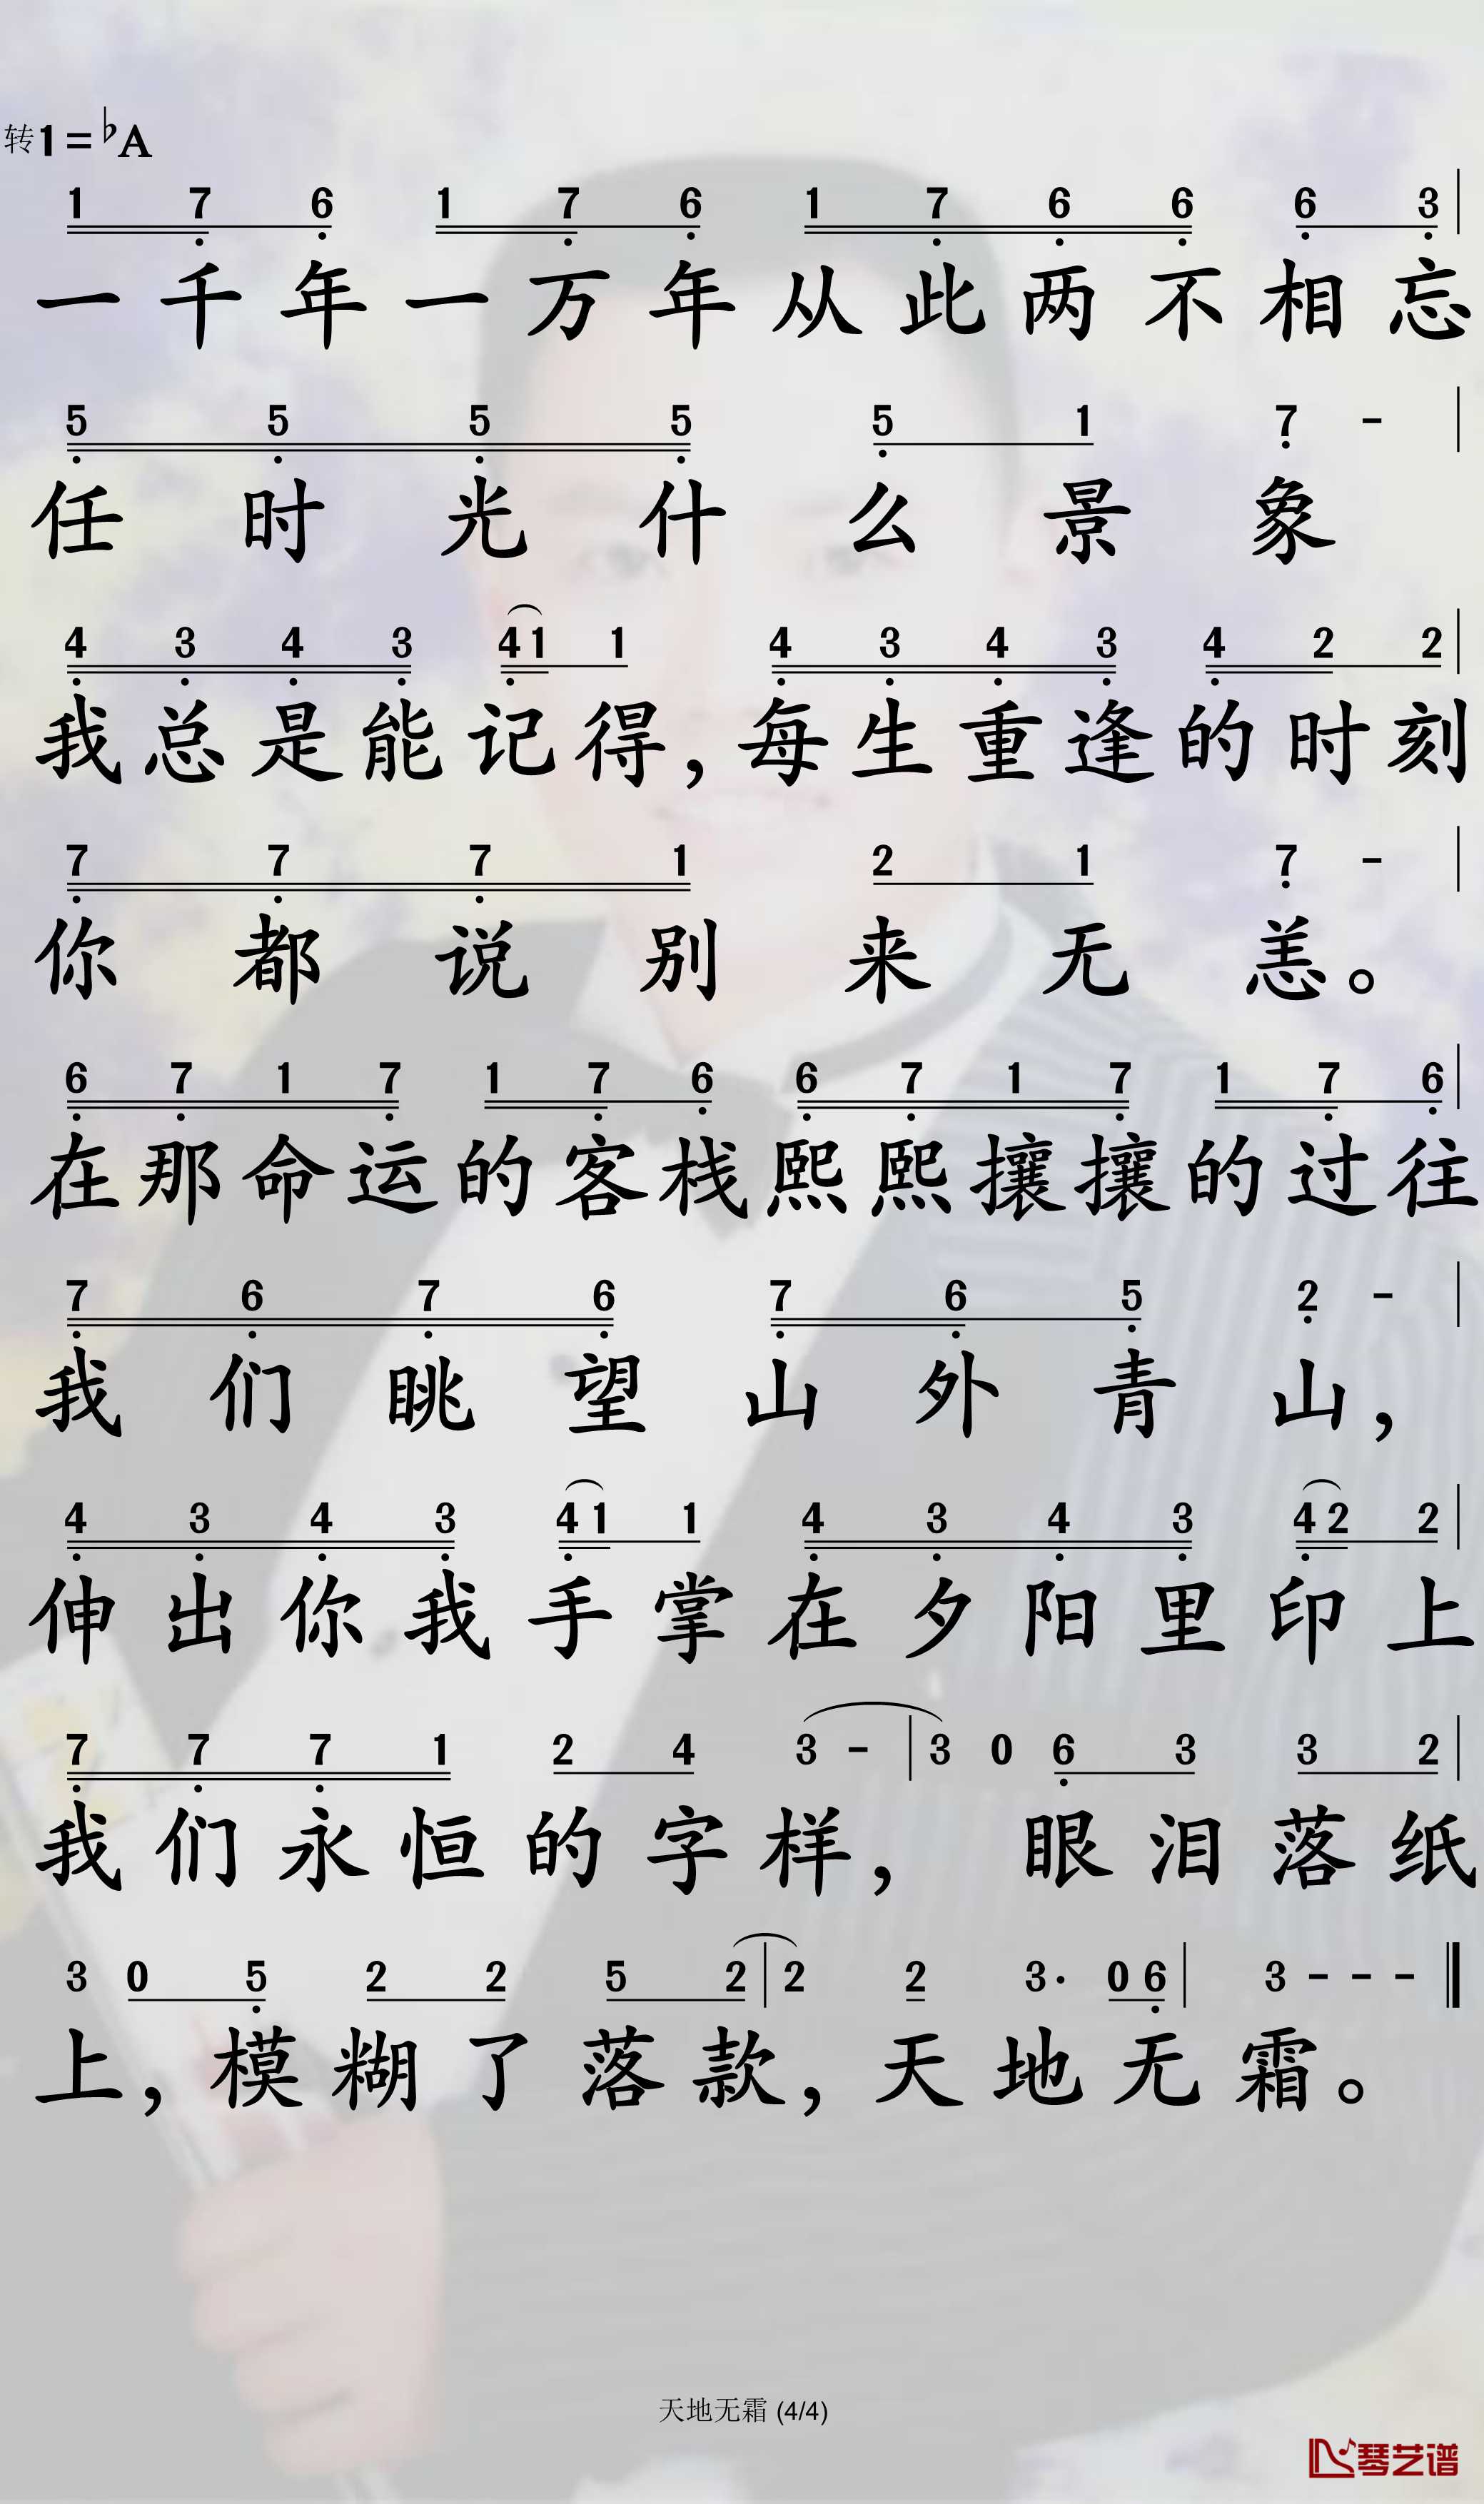 转1=♭A
1 7 6 1 7 6 1 7 6 6 6 3
一千年一万年从此两不相忘
5 5 5 5 5 1 7 -
任时光什么景象
4 3 4 3 4 1 1 4 3 4 3 4 2 2
我总是能记得,每生重逢的时刻
7 7 7 1 2 1 7 -
你都说别来无恙。
6 7 1 7 1 7 6 6 7 1 7 1 7 6
在那命运的客栈熙熙攘攘的过往
7 6 7 6 7 6 5 2 -
我们眺望山外青山,
4 3 4 3 4 1 1 4 3 4 3 4 2 2
伸出你我手掌在夕阳里印上
7 7 7 1 2 4 3 - 3 0 6 3 3 2
我们永恒的字样, 眼泪落纸
3 0 5 2 2 5 2 2 2 3· 0 6 3 - - -
上,模糊了落款,天地无霜。
天地无霜 (4/4)
琴艺谱